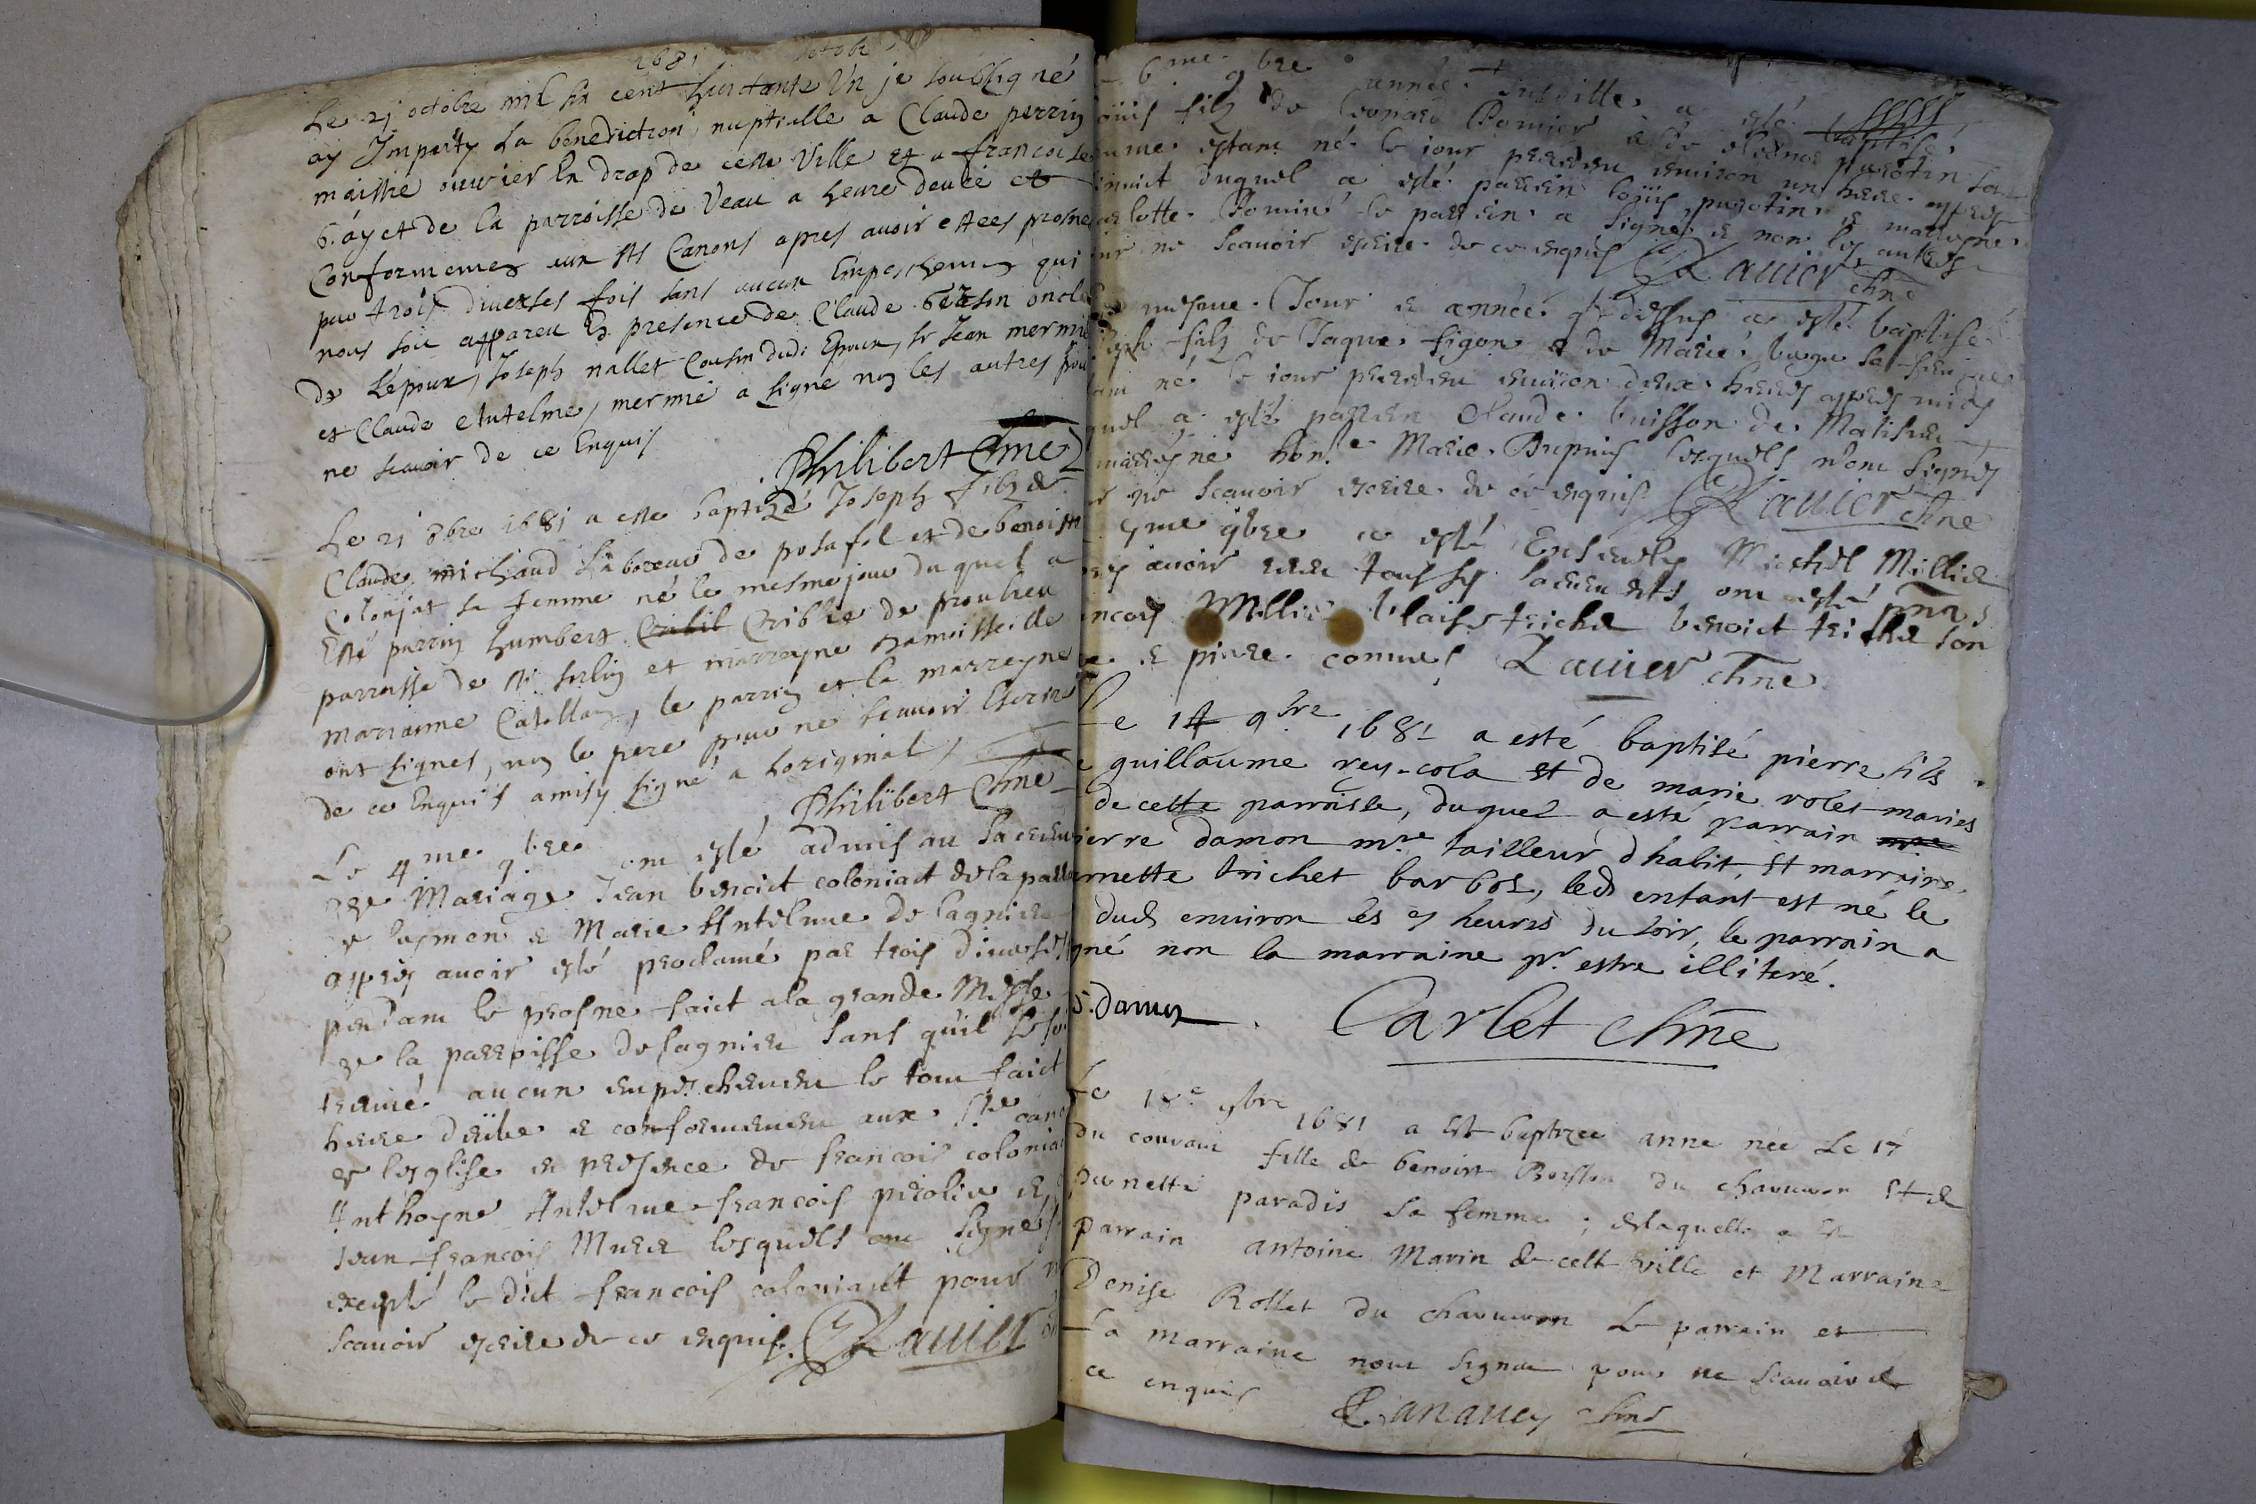 1681 octobre
Le 21 octobre mil six cent huictante Un je soubsigné
ay Imparty La benediction nuptialle a Claude perrin
maistre ouvrier En drap de cette Ville et a francoise
de la parroisse de Veau a heure deüe et
Conformement aux Sts Canons apres avoir estees prosnes
par trois diverses fois sans aucun Empeschement qui
nous soit appareu En presence de Claude oncle
de L'époux, Joseph nallet Cousin dudi Epoux, sr Jean mermié
et Claude Antelme, mermié a signé non les autres pour
ne scavoir de ce Enquis
Philibert Chne
Le 21 8bre 1681 a esté baptizé Joseph filz de
Claude michaud Laboreur de posafol et de benoiste
Colonjat sa femme né le mesme jour duquel a
Esté parrin humbert Cribil Criblie de proulieu
parroisse de St sorlin et marreyne Damoiselle
marianne Catellan, le parrin et la marreyne
ont signes, non le pere pour ne scavoir Escrire
de ce Enquis amisy signé a horiginal,
Philibert Chne
Le 4me 9bre ont esté admis au Sacrem
de Mariage Jean benoict coloniact de la parr
de leymen & Marie Antelme de lagnieu
appres avoir esté proclamé par trois diverses
pendant le prosne faict a la grande Messe
de la parroisse de lagnieu sans quil se soi
treuvé aucun empechement le tout faict
heure deüe & conformement aux Sts cano
de lesglise en presence de francois coloniac
Anthoyne Antelme francois perolieu &
Jean francois Murer lesquels ont signés
excepté le dict francois coloniact pour n
scavoir escrire de ce enquis. Ravier
6me 9bre année susditte a esté baptisé
ouis filz de leonard Pomier & de eleonor purotin sa
mme estant né le iour precedent environ un heure appres
minuict duquel a esté parrein loÿis purotin & marreyne
arlotte Pominé le parrein a signé & non les autres
ur ne scavoir escrire de ce enquis Ravier chne
mesme Jour & année cy dessus a esté baptisé
seph filz de Jaque figon & de Marie buge sa femme
tant né le iour precedent environ deux heures appres midy
quel a esté parrein Claude buisson de Matisieu
marreyne honle Marie Dupuis lesquels n'ont signés
r ne scavoir escrire de ce enquis Ravier chne
9me 9bre a esté Ensevely Michel Millier
pres avoir receu tous ses sacrements ont esté pnts
ancoys Millier blaise trichet benoict trichet son
& pierre comues Ravier chne
Le 14 9bre 1681 a esté baptisé pierre fils
e guillaume rey-cola et de marie rolet maries
de cette parroisse, duquel a esté parrain
ierre damon mre tailleur d'habit, et marraine
rnette trichet barbos, led enfant est né le
dud environ les 9 heures du soir, le parrain a
gné non la marraine pr estre illiteré.
Damon
Carlet chne
Le 18e 9bre 1681 a esté baptizee anne née Le 17
du courant fille de benoist Boysson du chauvron et de
pernette paradis sa femme; de laquelle a esté
parrain antoine Marin de cette ville et Marraine
Denise Rollet du chauvron Le parrain et
La marraine nont signée pour ne scavoir de
ce enquis
Ranauey chne